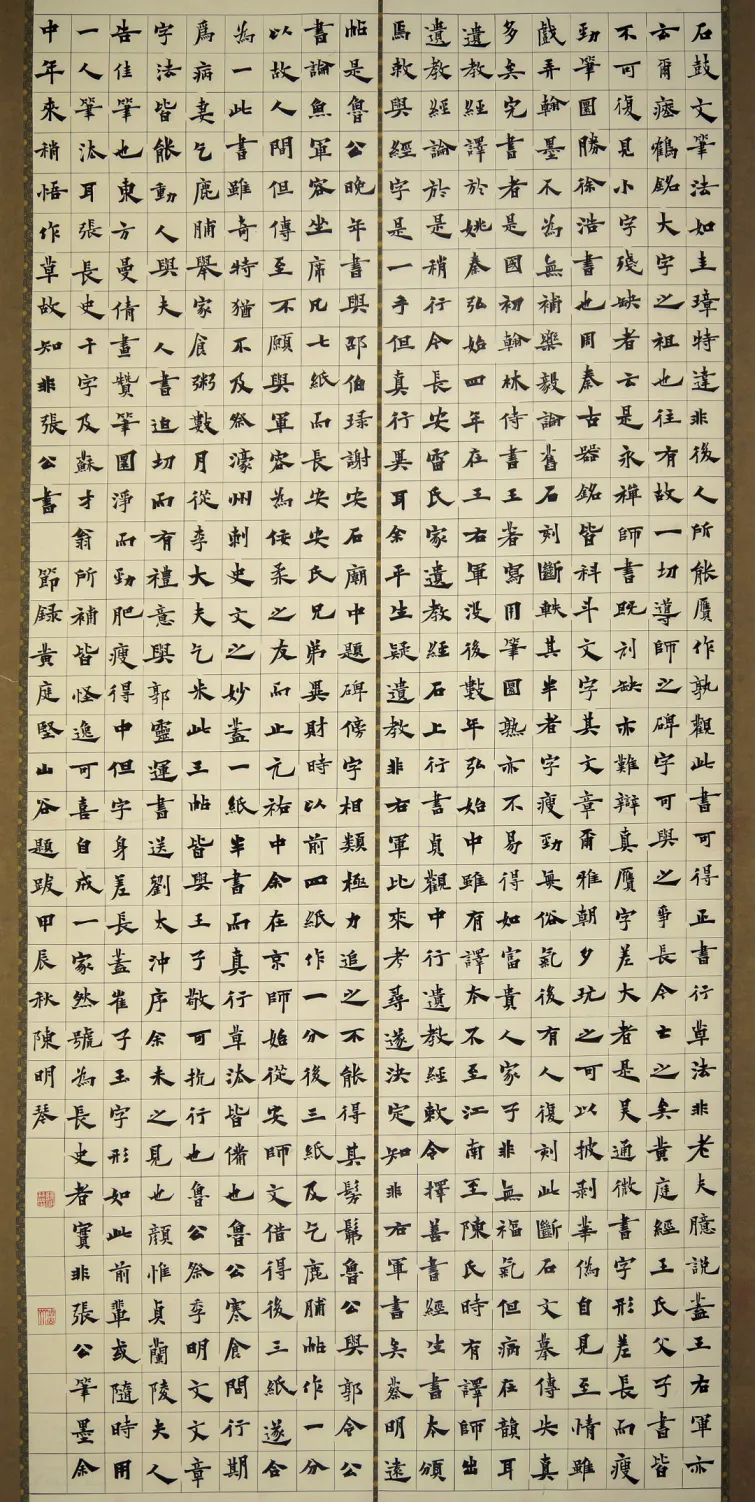 石鼓文筆法如圭璋特達非後人所能贋作孰觀此書可得正書行草法非老夫臆說蓋王右軍亦
云爾瘞鶴銘大字之祖也往有故一切導師之碑字可與之爭長今亡之矣黃庭經王氏父子書皆
不可復見小字殘缺者云是永禪師書既刓缺亦難辯真贋字差大者是吳通微書字形差長而瘦
勁筆圓勝徐浩書也周秦古器銘皆科斗文字其文章爾雅朝夕玩之可以披剥華偽自見至情雖
戲弄翰墨不為無補樂毅論舊石刻斷軼其半者字瘦勁無俗氣後有人復刻此斷石文摹傳失真
多矣完書者是國初翰林侍書王著寫用筆圓熟亦不易得如富貴人家子非無福氣但病在韻耳
遺教經譯於姚秦弘始四年在王右軍没後數年弘始中雖有譯本不至江南至陳氏時有譯師出
遺教經論於是稍行今長安雷氏家遺教經石上行書貞觀中行遺教經敕令擇善書經生書本頒
焉敕與經字是一手但真行異耳余平生疑遺教非右軍比來考尋遂決定知非右軍書矣蔡明遠
帖是魯公晚年書與邵伯埭謝安石廟中題碑傍字相類極力追之不能得其髣髴魯公與郭令公
書論魚軍容坐席凡七紙而長安安氏兄弟異財時以前四紙作一分後三紙及乞鹿脯帖作一分
以故人間但傳至不願與軍容為佞柔之友而止元祐中余在京師始從安師文借得後三紙遂合
為一此書雖奇特猶不及祭濠州刺史文之妙蓋一紙半書而真行草法皆備也魯公寒食問行期
為病妻乞鹿脯舉家食粥數月從李大夫乞米此王帖皆與王子敬可抗行也魯公祭季明文文章
字法皆能動人與夫人書迫切而有禮意與郭靈運書送劉太沖序余未之見也顏惟貞蘭陵夫人
告佳筆也東方曼倩畫贊筆圓淨而勁肥瘦得中但字身差長蓋崔子玉字形如此前輩或隨時用
一人筆法耳張長史千字及蘇才翁所補皆怪逸可喜自成一家然號為長史者實非張公筆墨余
中年來稍悟作草故知非張公書 節錄黃庭堅山谷題跋甲辰秋陳明琴